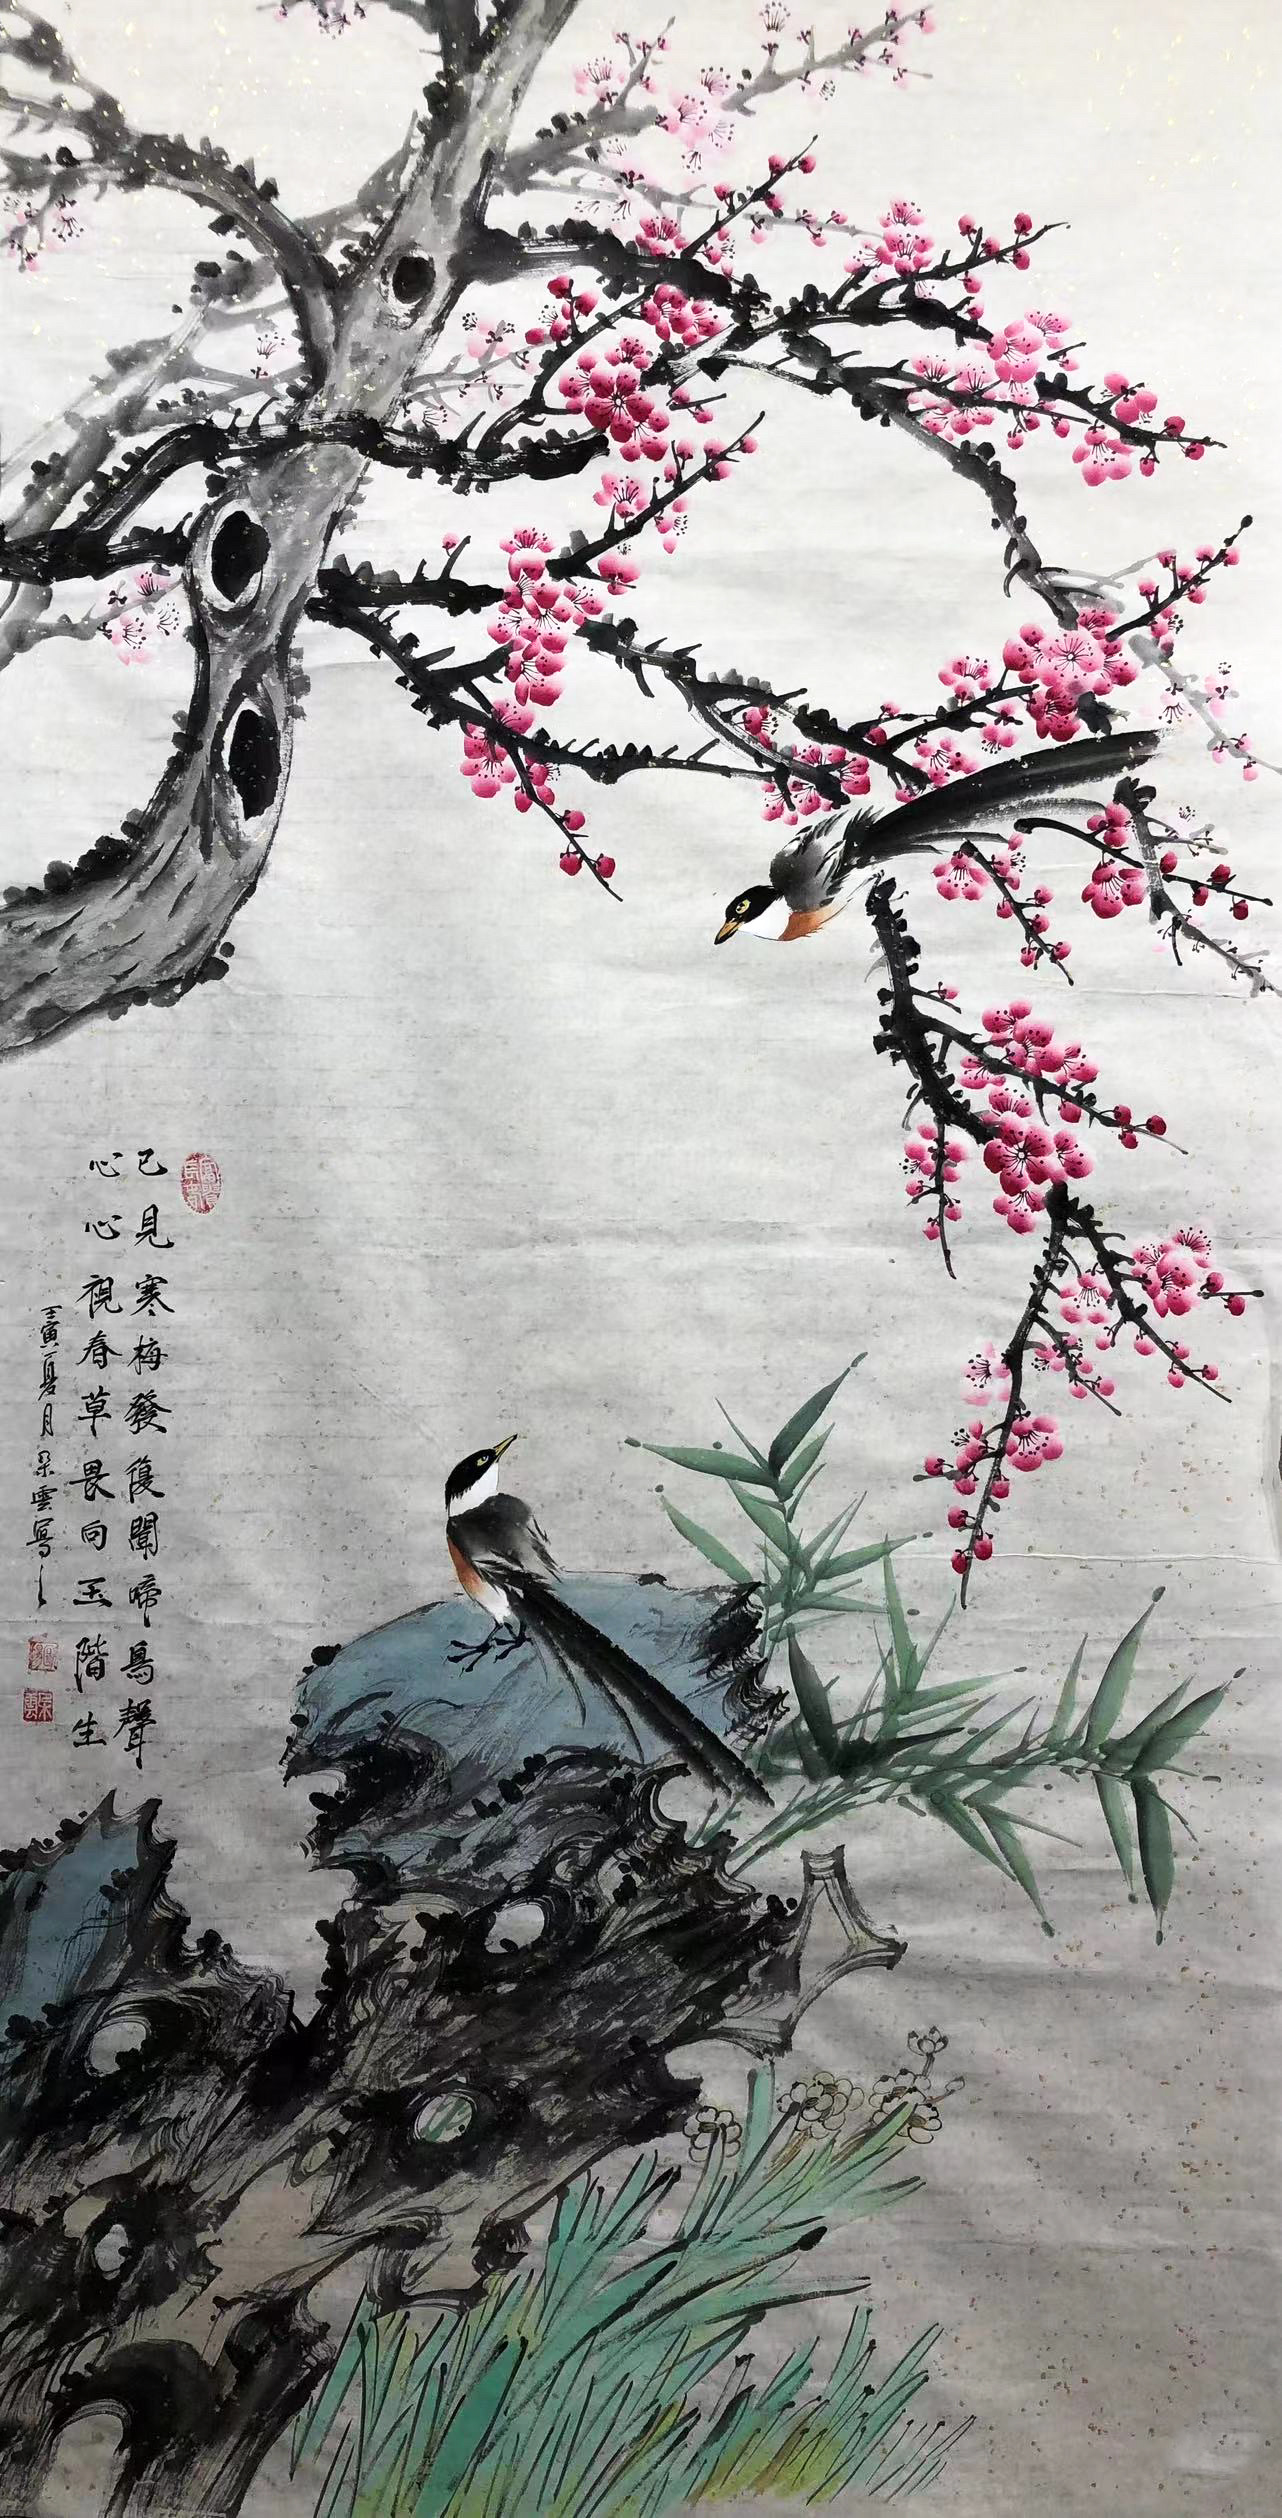 已見寒梅發復聞啼鳥聲
心心視春草畏向玉階生
壬寅夏月朵雲寫之